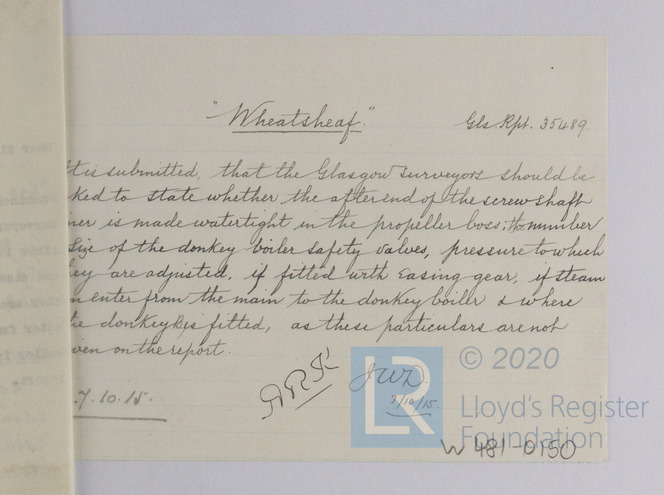 "Wheatsheaf." Gls Rpt. 35489.
It is submitted, that the Glasgow Surveyors should be
ked to state whether the after end of the screw shaft
ner is made watertight in the propeller boss; the number
size of the donkey boiler safety valves, pressure to which
ey are adjusted, if fitted with easing gear, if steam
n enter from the main to the donkey boiler & where
he donkey is fitted, as these particulars are not
ven on the report.
7.10.15.
7/10/15.
LR
© 2020
Lloyd's Register
Foundation
W481-0150